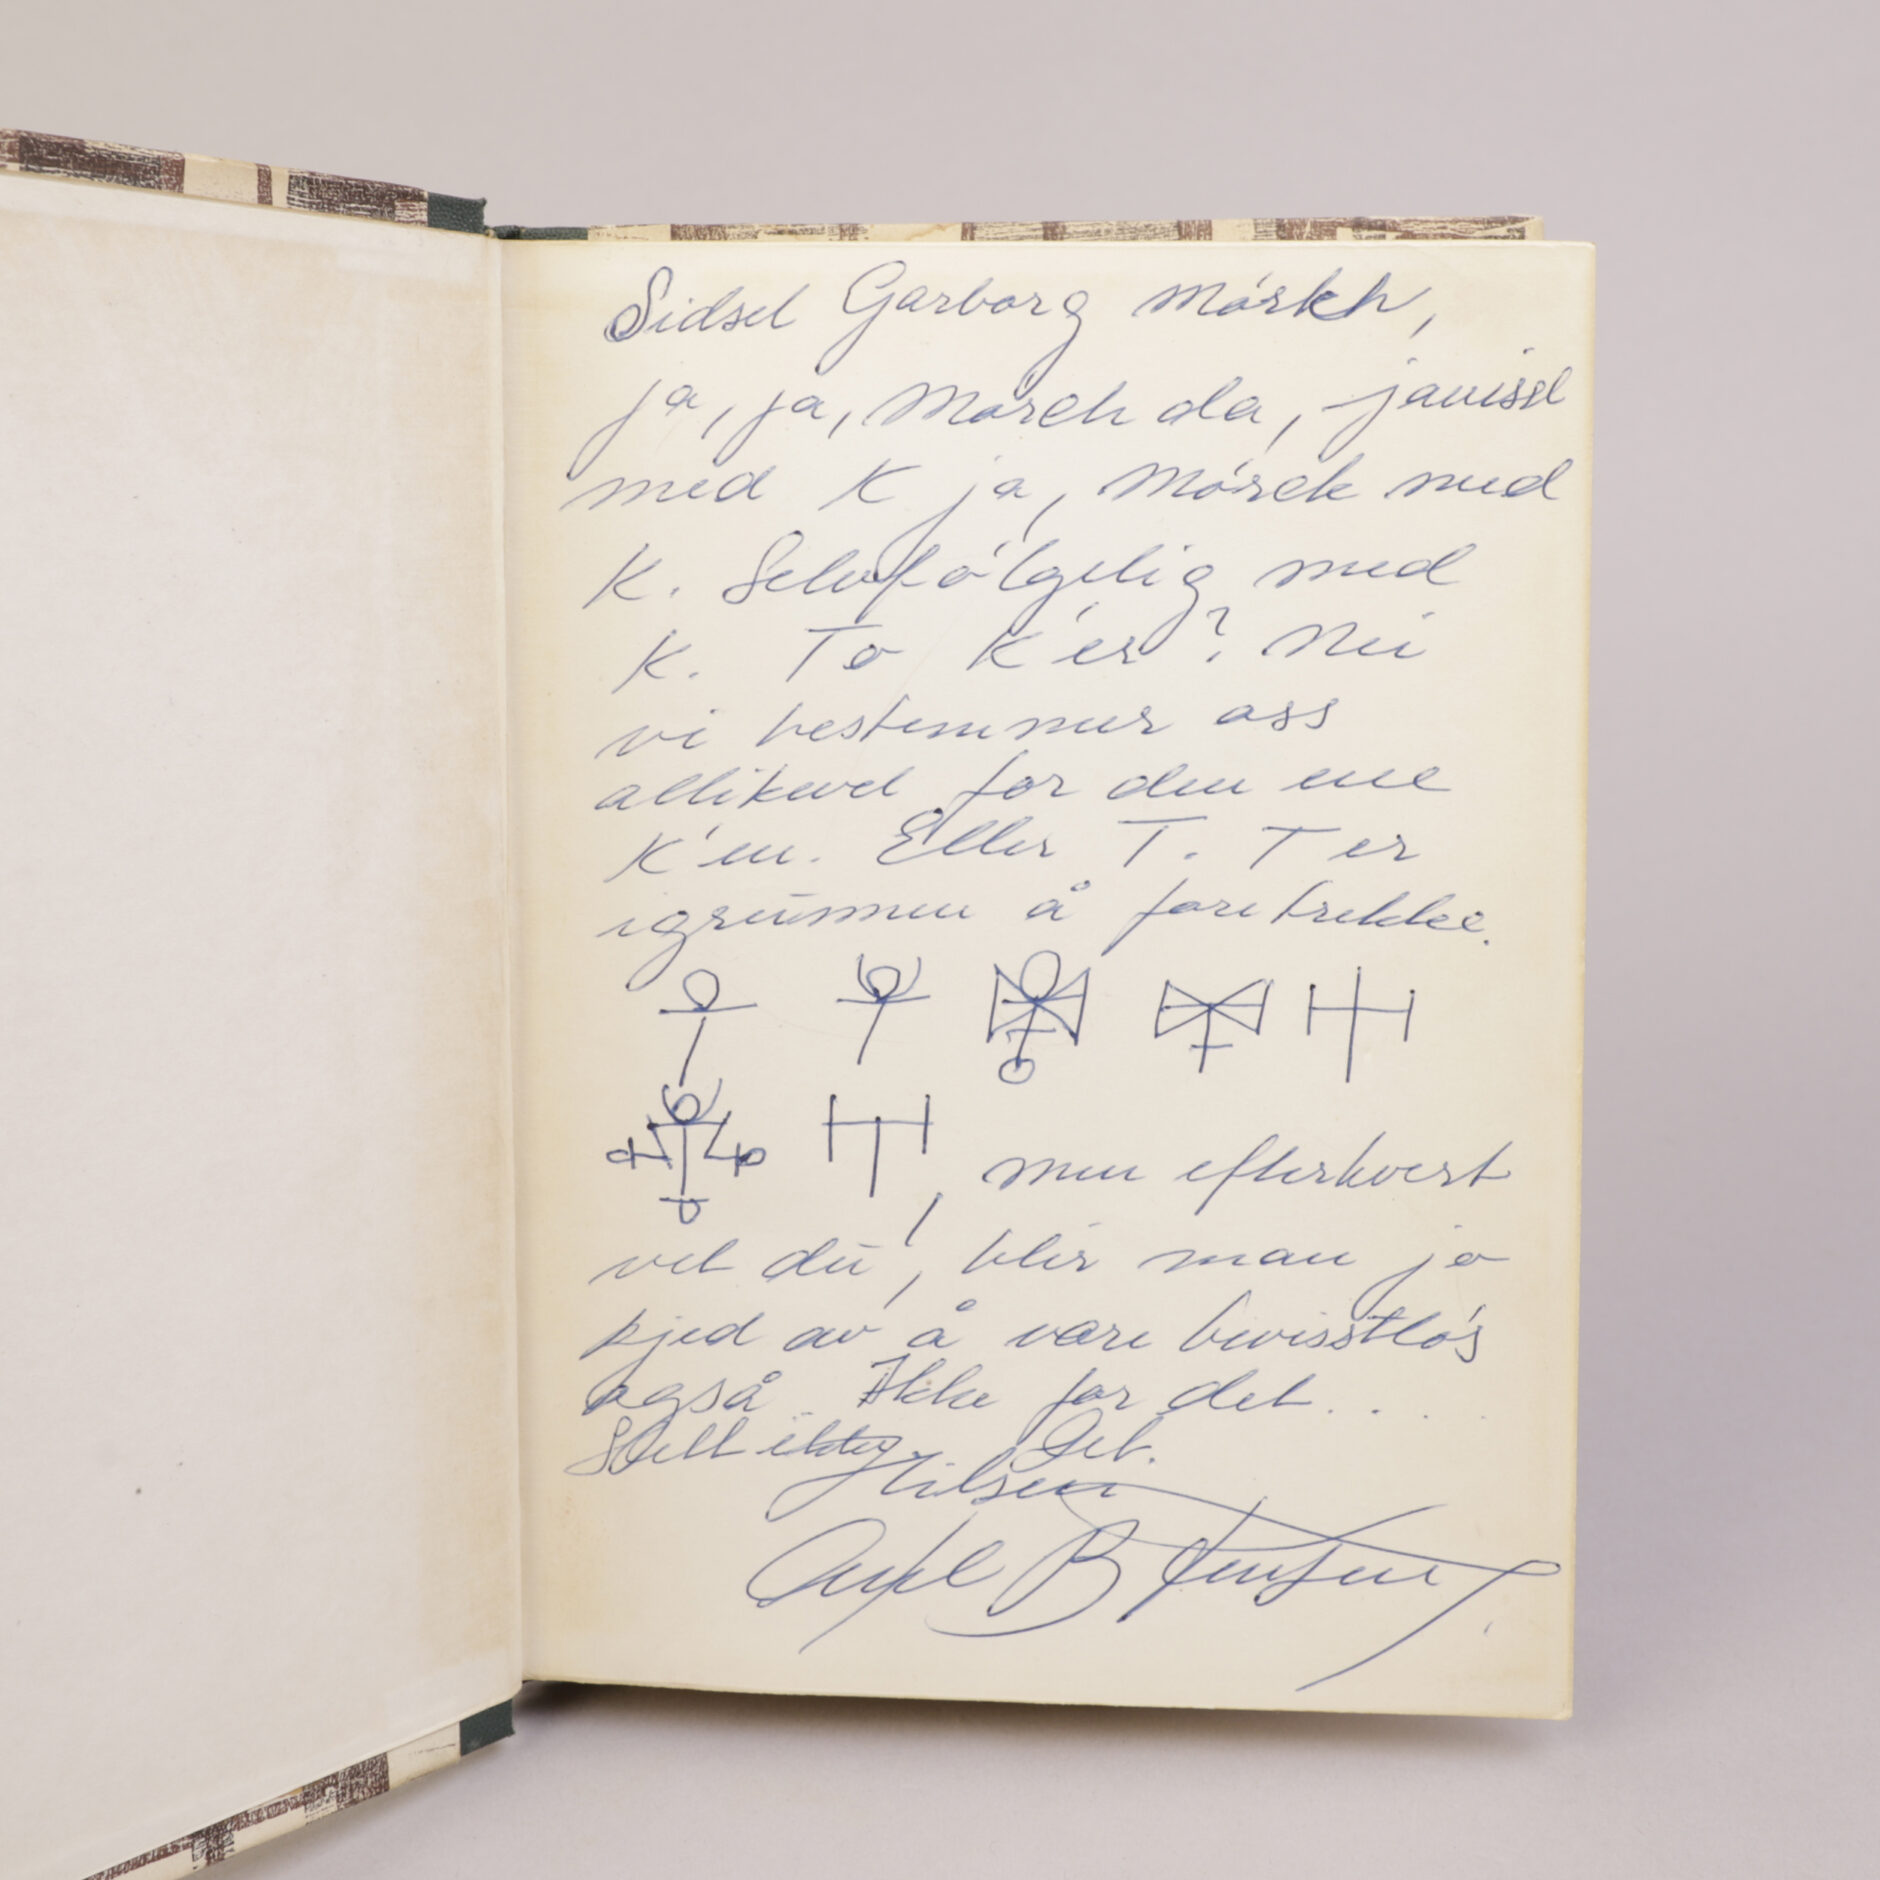 Sidsel Garborg Mórkh,
ja, ja, Mórch da, javisst
med K ja, Mórck med
K. Selvfólgelig med
K. To K'er? Nei
vi bestemmer oss
allikevel for den ene
K'en. Eller T. T er
igrunnen å foretrekke.
, men efterhvert
vet du, blir man jo
kjed av å være bevisstlós
også. Ikke for det....
Hilsen
Axel B Jensen